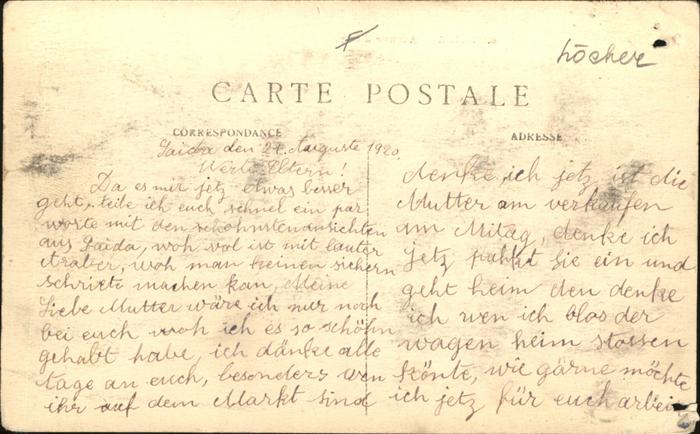 Löcher
CARTE POSTALE
CORRESPONDANCE
ADRESSE
Saida den 21. Auguste 1920.
Werte Eltern!
Da es mir jetz etwas besser
geht, teile ich euch schnel ein par
worte mit den schöhnsten ansichten
aus Saida, woh vol ist mit lauter
Araber, woh man keinen sichern
schritt machen kan, Meine
Liebe Mutter wäre ich nur noch
bei euch woh ich es so schöhn
gehabt habe, ich dänke alle
tage an euch, besonders wen
ihr auf dem Markt sind
denke ich jetz ist die
Mutter am verkaufen
am Mitag, denke ich
jetz pahkt sie ein und
geht heim den denke
ich wen ich blos der
wagen heim stossen
könte, wie gärne möchte
ich jetz für euch arbei